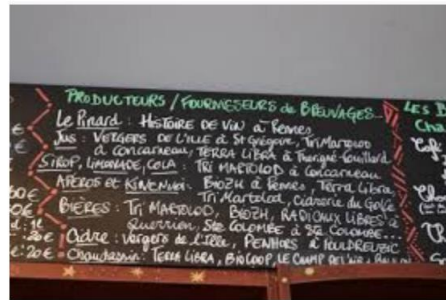 PRODUCTEURS / FOURNISSEURS de BREUVAGES
Le Pinard : HISTOIRE DE VIN à Rennes
Jus : VERGERS DE L'ILLE à St Grégoire, TRI MARTOLOD
à Concarneau, TERRA LIBRA à Thorigné-Fouillard
SIROP, LIMONADE, COLA : TRI MARTOLOD à Concarneau
APÉROS et : BIOZH à Rennes, Terra Libra,
Tri Martolod, Cidrerie du Golfe
BIÈRES : TRI MARTOLOD, BIOZH, RADICAUX LIBRES à
Querrien, Ste COLOMBE à Ste COLOMBE...
Cidre : Vergers de l'Ille, PENHORS à PLULDREUZIC
Chaudasain : TERRA LIBRA, BIOCOOP, LE CHAMP DE L'AIR
LES
Cha
Café
Cho
€
€
00€
0€
20€
20€